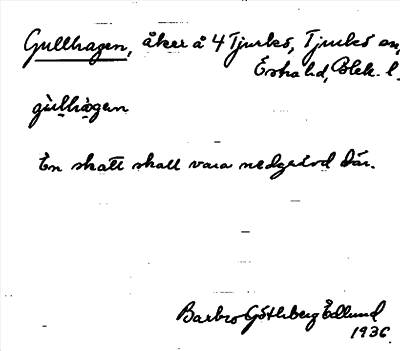 Gullhagen, åker å 4 Tjurkö, Tjurkö sn,
Ö. hd, Blek. l.
gùlhàgen
En skatt skall vara nedgrävd där.
Barbro Göthberg Edlund
1936